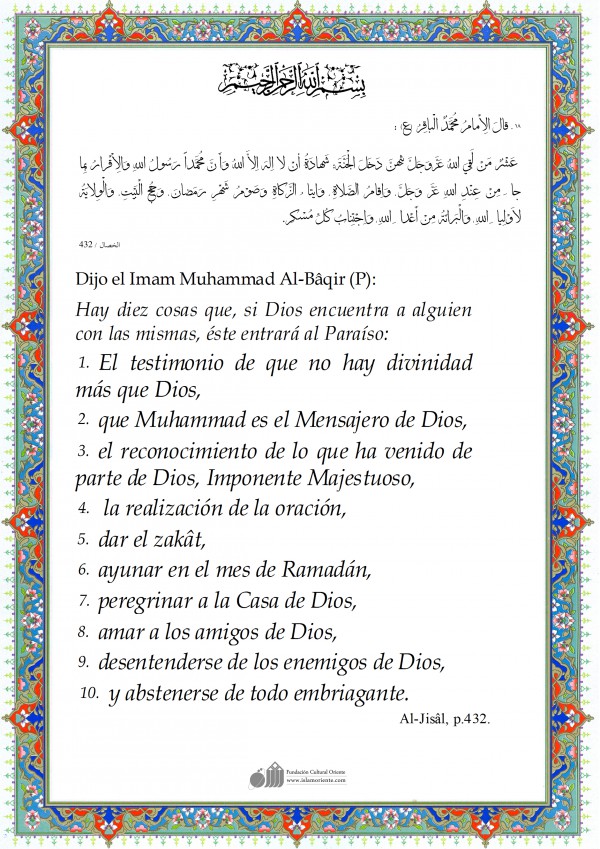 بِسْمِ اللهِ الرَّحْمنِ الرَّحِيمِ
١٨ . قالَ الإمامُ مُحَمَّدٌ الْباقِرُ (ع) :
عَشْرٌ مَن لَقِيَ اللهَ عَزَّوَجَلَّ بِهِنَّ دَخَلَ الْجَنَّةَ: شَهادَةُ أن لا اِلهَ إلاَّ اللهُ وَاَنَّ مُحَمَّداً رَسولُ اللهِ وَالإقْرارُ بِما
جاءَ مِنْ عِندِ اللهِ عَزَّ وَجَلَّ وَإقامُ الصَّلاةِ وَإيتاءُ الزَّكاةِ وَصَوْمُ شَهْرِ رَمَضانَ وَحَجُّ الْبَيْتِ وَالْوِلايَةُ
لأوْلِياءِ اللهِ وَالْبَرائَةُ مِنْ أعْداءِ اللهِ وَاجْتِنابُ كُلِّ مُسْكِرٍ.
الخصال / 432
Dijo el Imam Muhammad Al-Bâqir (P):
Hay diez cosas que, si Dios encuentra a alguien
con las mismas, éste entrará al Paraíso:
1. El testimonio de que no hay divinidad
más que Dios,
2. que Muhammad es el Mensajero de Dios,
3. el reconocimiento de lo que ha venido de
parte de Dios, Imponente Majestuoso,
4. la realización de la oración,
5. dar el zakât,
6. ayunar en el mes de Ramadán,
7. peregrinar a la Casa de Dios,
8. amar a los amigos de Dios,
9. desentenderse de los enemigos de Dios,
10. y abstenerse de todo embriagante.
Al-Jisâl, p.432.
Fundación Cultural Oriente
www.islamoriente.com